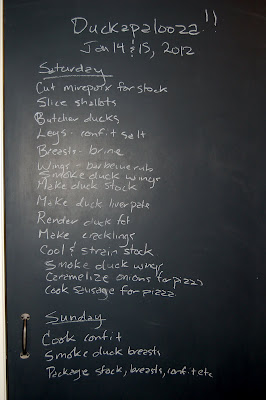 Duckapalooza!!
Jan 14 & 15, 2012
Saturday
Cut mirepoix for stock
Slice shallots
Butcher ducks
Legs - confit salt
Breasts - brine
Wings - barbecue rub
Smoke duck wings
Make duck stock
Make duck liver pate
Render duck fat
Make cracklings
Cool & strain stock
Smoke duck wings
Caramelize onions for pizza
Cook sausage for pizza
Sunday
Cook confit
Smoke duck breasts
Package stock, breasts, confit etc